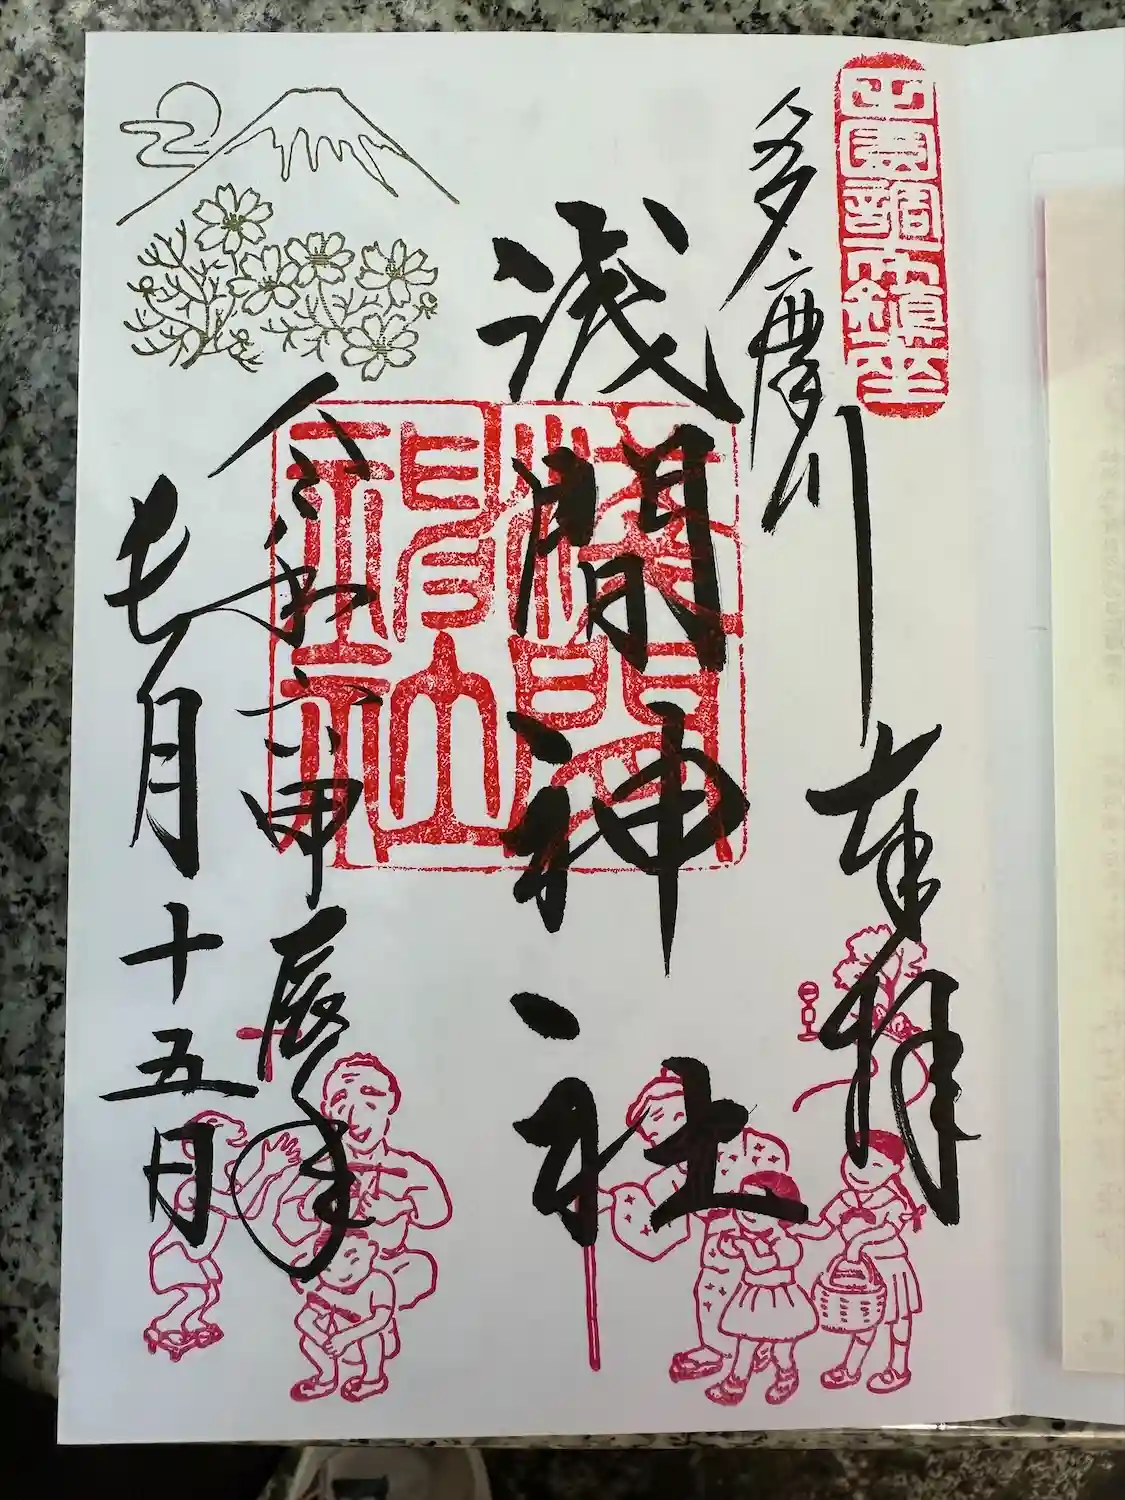 田園調布鎮座
奉拝
多摩川
浅間神社
令和六甲辰年
七月十五日